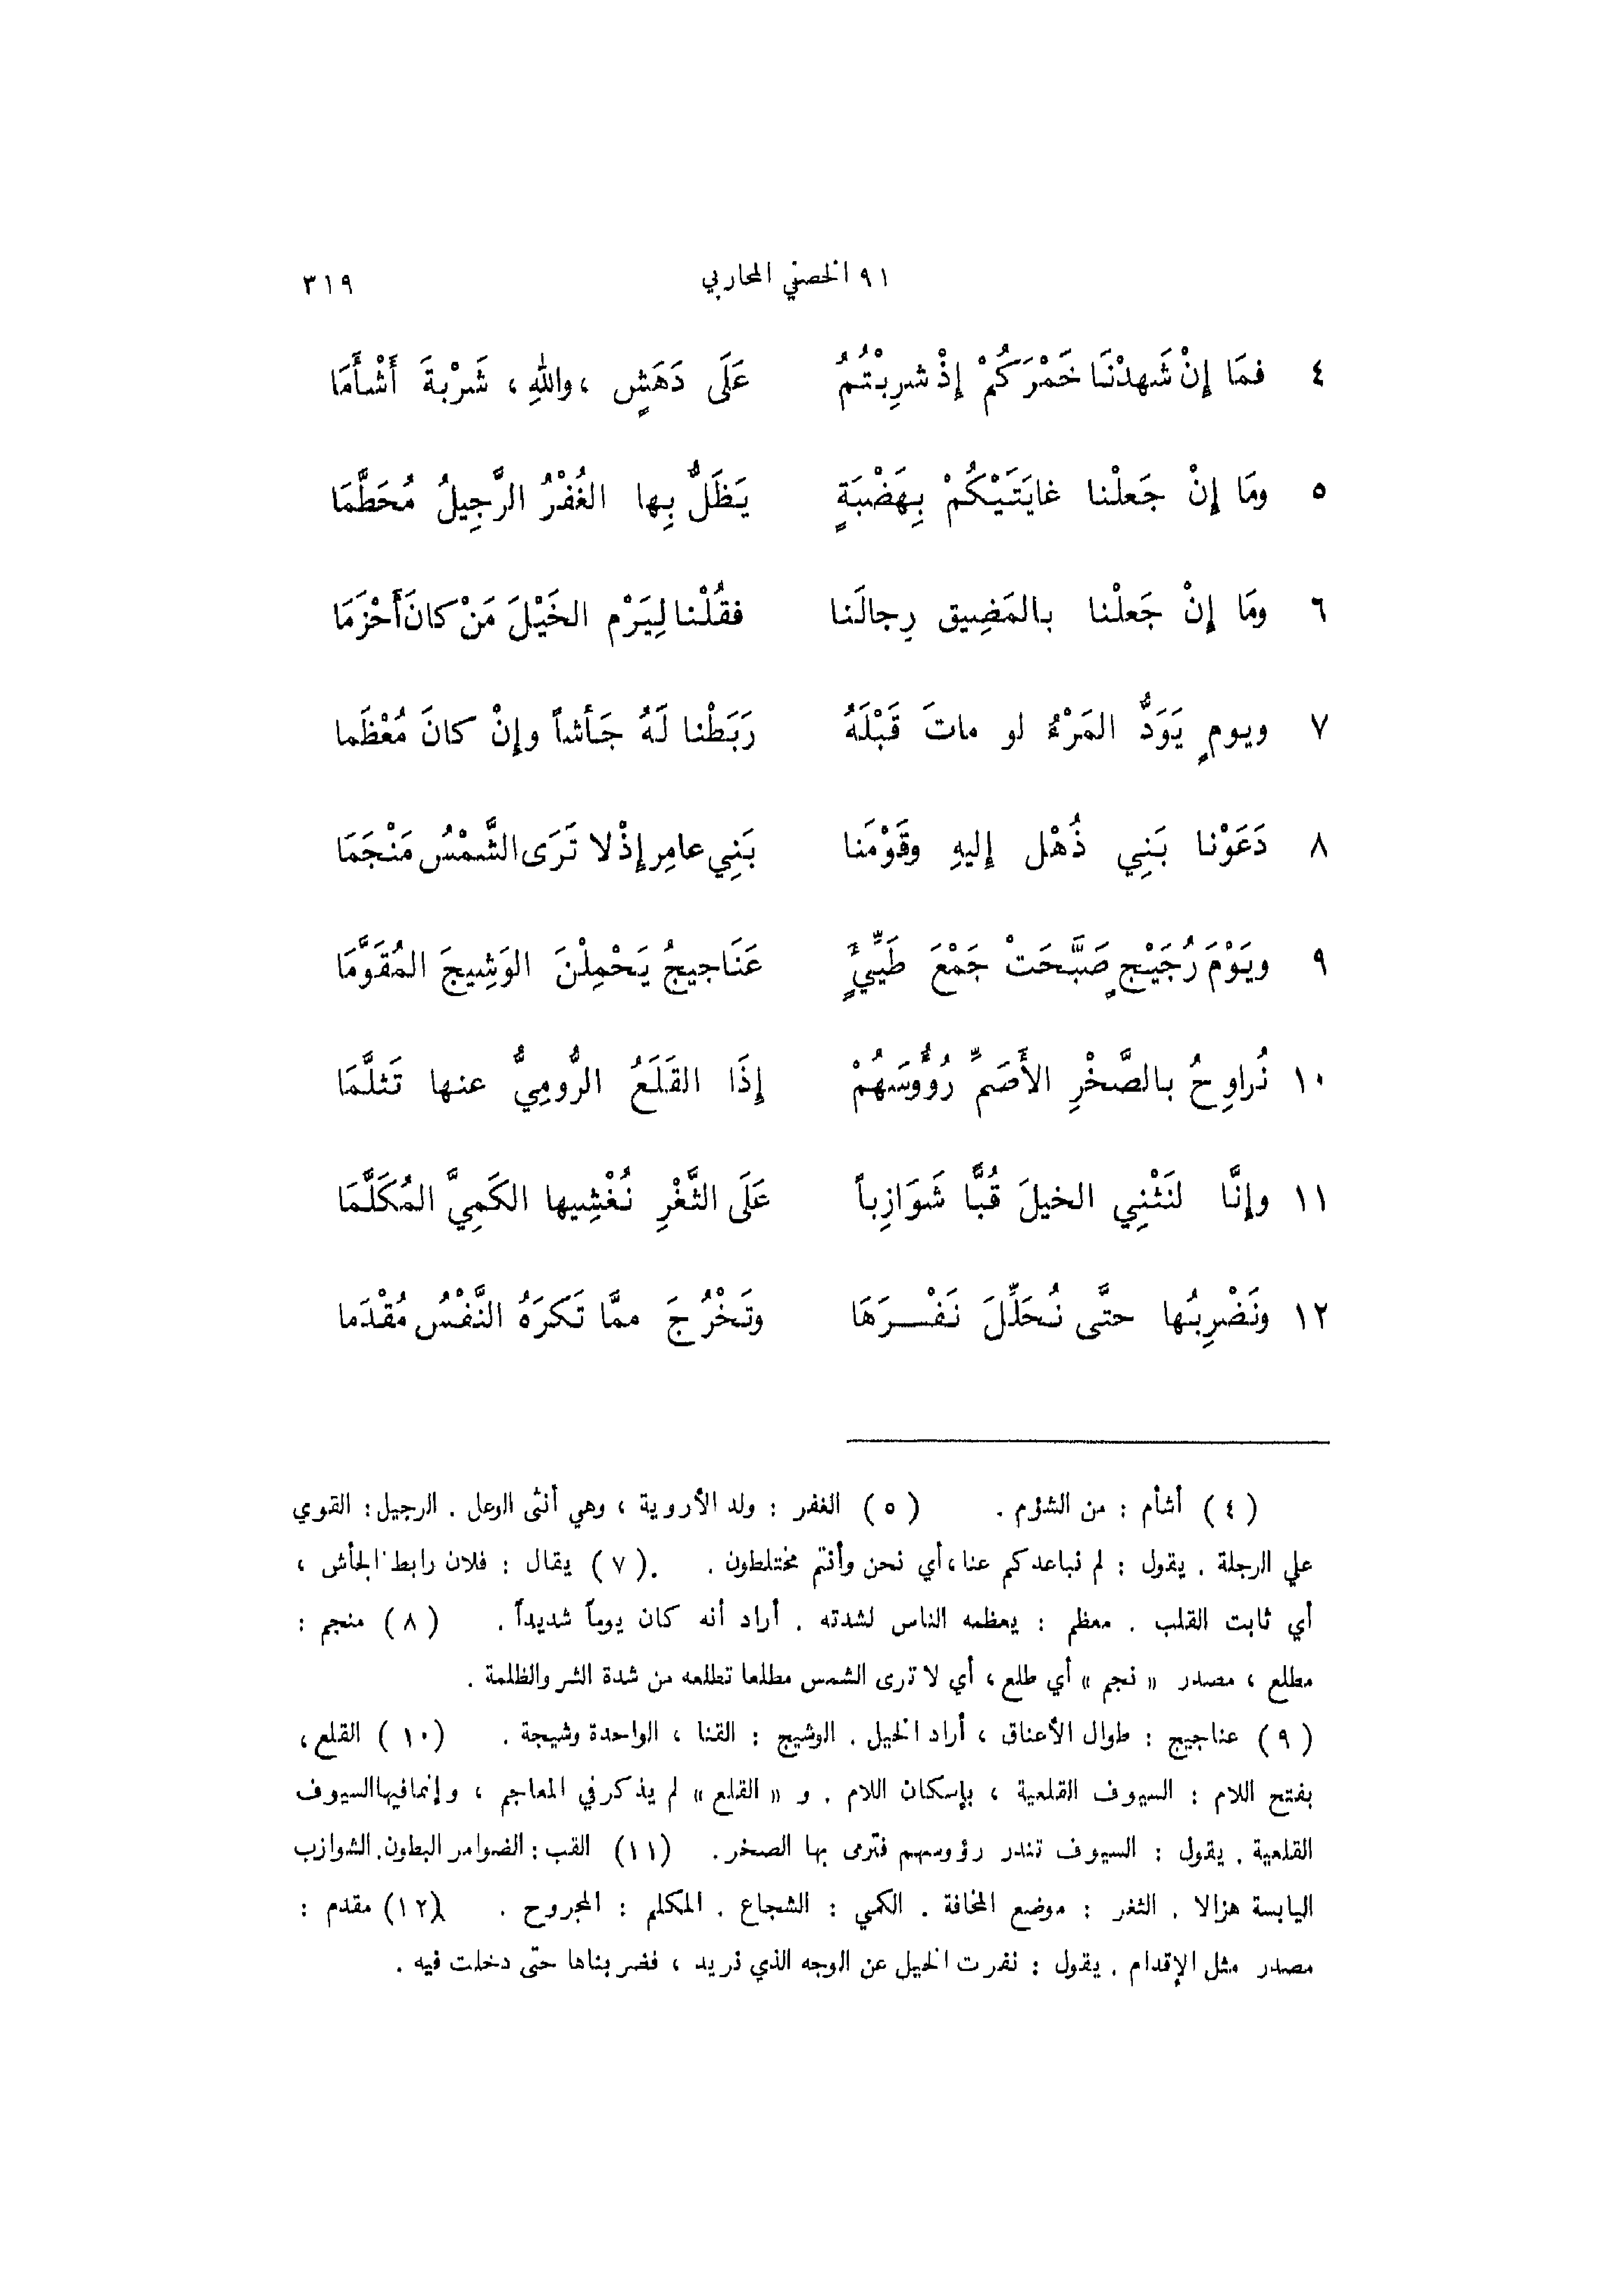 ٩١ الخصفي المحاربي ٣١٩
٤ فمَا إِنْ شَهِدْنَا خَمْرَكُمْ إِذْ شرِبْتُمُ عَلَى دَهَشٍ ، واللهِ ، شَرْبةَ أَشْأَمَا
٥ ومَا إِنْ جَعلْنا غايَتَيْكُمْ بِهَضْبَةٍ يَظَلُّ بِها الغُفْرُ الرَّجِيلُ مُحَطَّمَا
٦ ومَا إِنْ جَعلْنا بالمَضِيق رِجالَنا فقُلْنا لِيَرْمِ الخَيْلَ مَنْ كانَ أَحْزَمَا
٧ ويومٍ يَوَدُّ المَرْءُ لو ماتَ قَبْلَهُ رَبَطْنا لَهُ جَأشاً وإِنْ كانَ مُعْظَما
٨ دَعَوْنا بَنِي ذُهْل إِليهِ وقَوْمَنا بَنِي عامِر إِذْ لا تَرَى الشَّمْسُ مَنْجَمَا
٩ ويَوْمَ رُجَيْجٍ صَبَّحَتْ جَمْعَ طَيِّئٍ عَنَاجيجُ يَحْمِلْنَ الوَشِيجَ المُقَوَّمَا
١٠ نُراوِحُ بالصَّخْرِ الأَصَمِّ رُؤُوسَهُمْ إِذَا القَلَعُ الرُّومِيُّ عنها تَثلَّمَا
١١ وإِنَّا لنَثْنِي الخيلَ قُبًّا شَوَازِباً عَلَى الثَّغْرِ نُغْشِيها الكَمِيَّ المُكَلَّمَا
١٢ ونَضْرِبُها حتَّى نُحَلِّلَ نَفْرَهَا وتَخْرُجَ ممَّا تَكرَهُ النَّفْسُ مُقْدَما
( ٤ ) أشأم : من الشؤم . ( ٥ ) الغفر : ولد الأروية ، وهي أنثى الوعل . الرجيل : القوي
على الرجلة . يقول : لم نباعدكم عنا ، أي نحن وأنتم مختلطون . ( ٧ ) يقال : فلان رابط الجأش ،
أي ثابت القلب . معظم : يعظمه الناس لشدته . أراد أنه كان يوماً شديداً . ( ٨ ) منجم :
مطلع ، مصدر « نجم » أي طلع ، أي لا ترى الشمس مطلعا تطلعه من شدة الشر والظلمة .
( ٩ ) عناجيج : طوال الأعناق ، أراد الخيل . الوشيج : القنا ، الواحدة وشيجة . ( ١٠ ) القلع ،
بفتح اللام : السيوف القلعية ، بإسكان اللام . و « القلع » لم يذكر في المعاجم ، وإنما فيها السيوف
القلعية . يقول : السيوف تندر رؤوسهم فترمى بها الصخر . ( ١١ ) القب : الضوامر البطون . الشوازب
اليابسة هزالا . الثغر : موضع المخافة . الكمي : الشجاع . المكلم : المجروح . ( ١٢ ) مقدم :
مصدر مثل الإقدام . يقول : نفرت الخيل عن الوجه الذي نريد ، فضربناها حتى دخلت فيه .